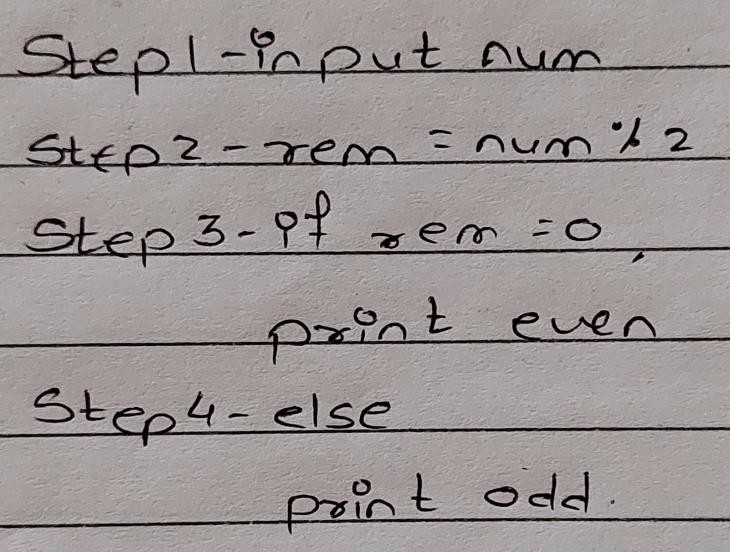 Step1-input num
Step2-rem = num % 2
Step3-if rem =0,
print even
Step4-else
print odd.